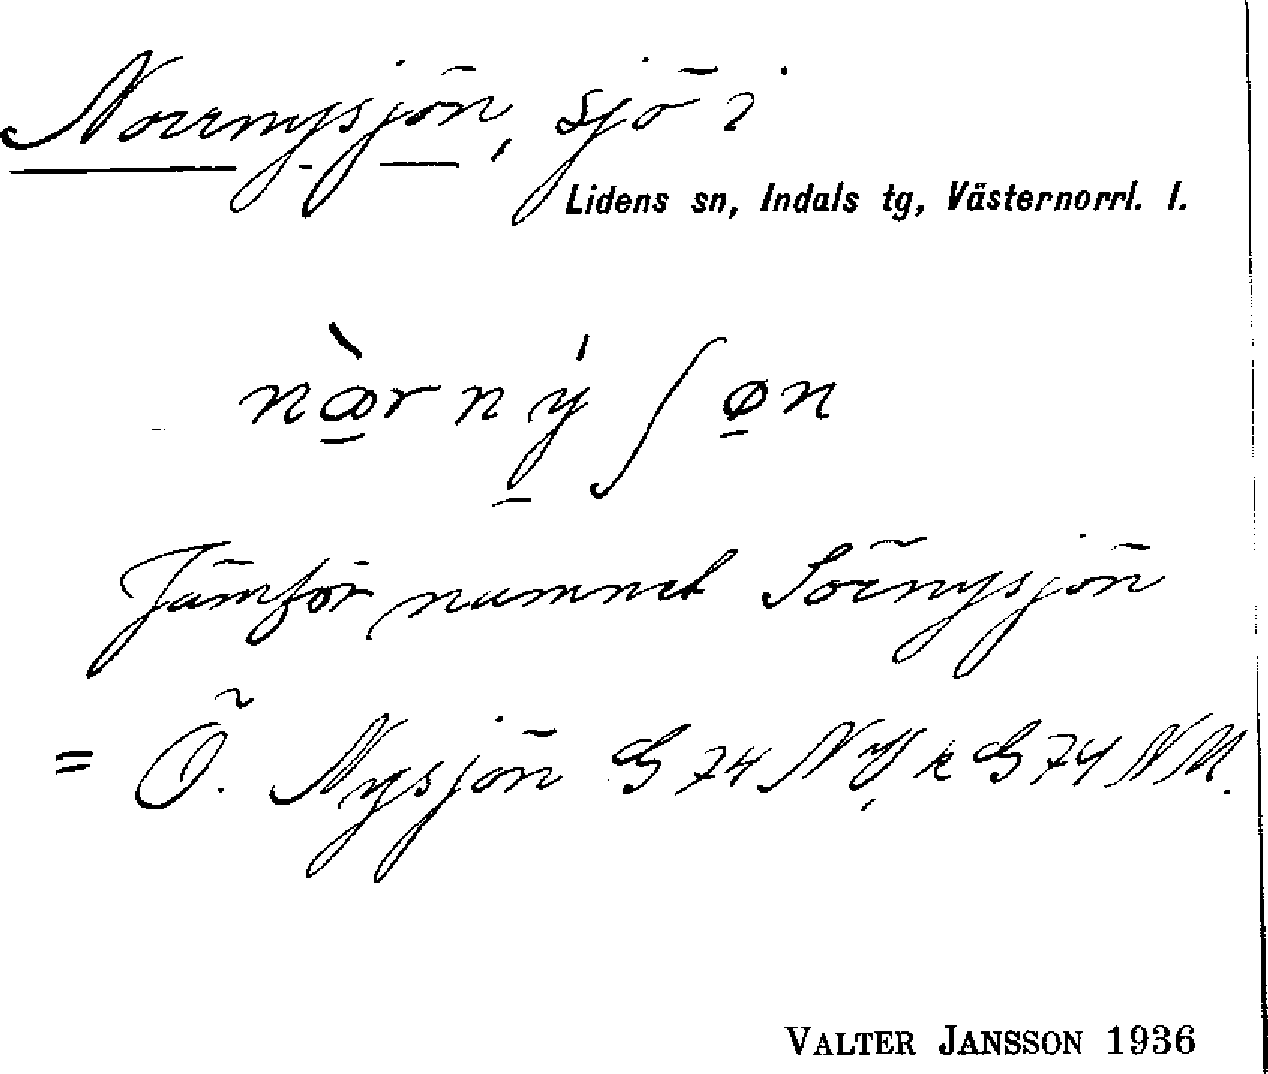 Norrnysjön, sjö i
Lidens sn, Indals tg, Västernorrl. l.
nꝏ̀r ný ʃ øn
Jämför namnet Sörnysjön
= Ö. Nysjön G 74 NV, k G 74 NV.
VALTER JANSSON 1936